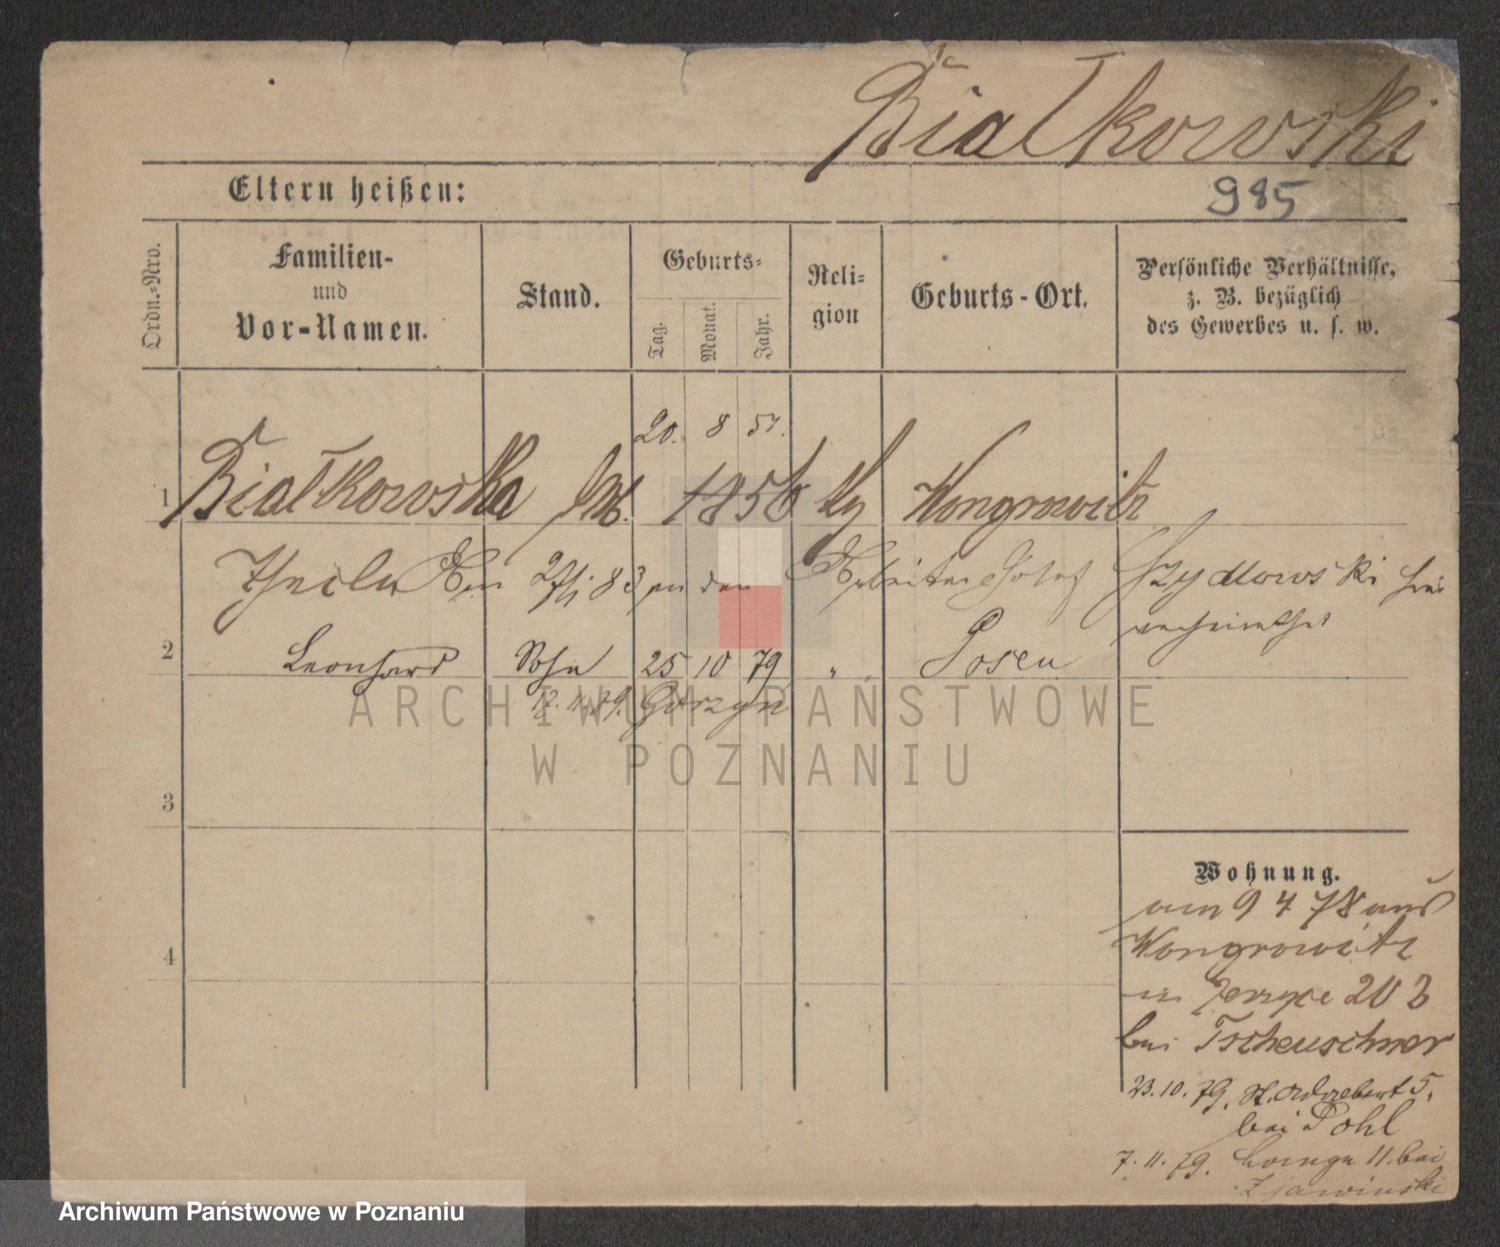 Białkowski
Eltern heißen:
985
Ordn.-Nro.
Familien-
und
Vor-Namen.
Stand.
Geburts-
Tag.
Monat.
Jahr.
Reli-
gion
Geburts-Ort.
Persönliche Verhältnisse,
z. B. bezüglich
des Gewerbes u. s. w.
20. 8 57.
1 Białkowska 1856 Wongrowitz
Thecla 83 an den Arbeiter Josef Szydlowski hier
verheirathet
2 Leonhard Sohn 25 10 79 " Posen
12.11.79. Gorzyn
ARCHIWUM PAŃSTWOWE
W POZNANIU
3
4
Wohnung.
am 9 4 78 aus
Wongrowitz
in Jerzyce 203
bei Tscheuschner
23.10.79. St. Adalbert 5.
bei Pohl
7.11.79. 11. bei
Archiwum Państwowe w Poznaniu